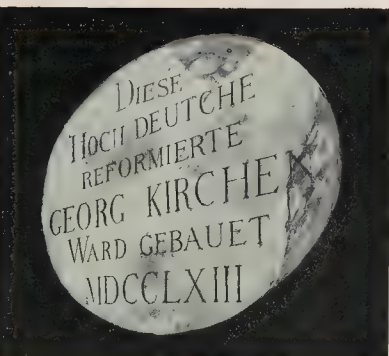 DIESE
HOCH DEUTCHE
REFORMIERTE
GEORG KIRCHE
WARD GEBAUET
MDCCLXIII